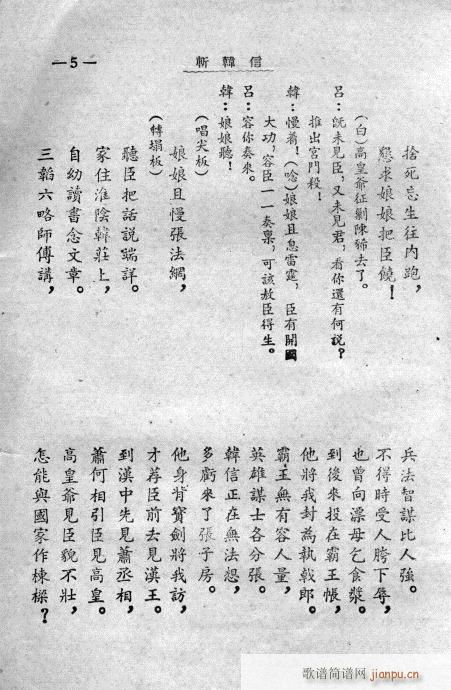 斬韓信
—5—
捨死忘生往内跑，
懇求娘娘把臣饒！
(白)高皇爺征剿陳豨去了。
呂：旣未見臣，又未見君，看你還有何説？
推出宮門殺！
韓：慢着！(唸)娘娘且息雷霆，臣有開國
大功，容臣一一奏稟，可該赦臣得生。
呂：容你奏來。
韓：娘娘聽！
(唱尖板)
娘娘且慢張法網，
(轉塌板)
聽臣把話説端詳。
家住淮陰韓莊上，
自幼讀書念文章。
三韜六略師傅講，
兵法智謀比人強。
不得時受人胯下辱，
也曾向漂母乞食漿。
到後來投在霸王帳，
他將我封為執戟郎。
霸王無有容人量，
英雄謀士各分張。
韓信正在無法想，
多虧來了張子房。
他身背寶劍將我訪，
才荐臣前去見漢王。
到漢中先見蕭丞相，
蕭何相引臣見高皇。
高皇爺見臣貌不壯，
怎能與國家作棟樑？
歌谱简谱网
jianpu.cn